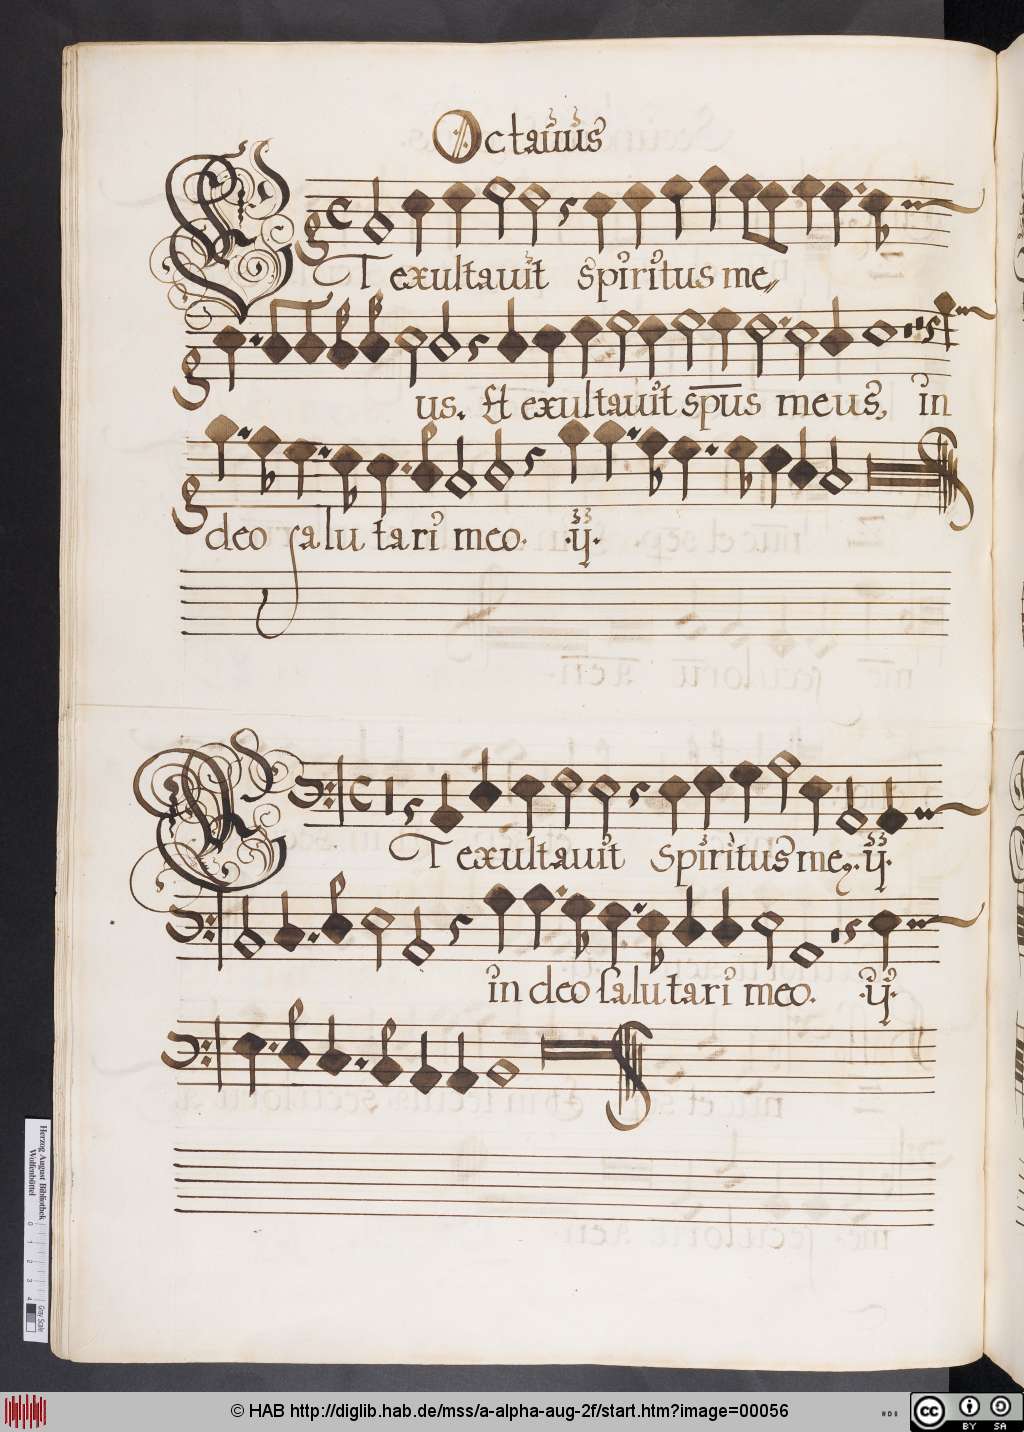 Octauus
ET exultauit spiritus me
us. Et exultauit spus meus, in
deo salutari meo. ·ij·
ET exultauit spiritus me, ij·
in deo salutari meo. ·ij·
Herzog August Bibliothek
Wolfenbüttel
0 1 2 3 4
Gray Scale
© HAB http://diglib.hab.de/mss/a-alpha-aug-2f/start.htm?image=00056
cc BY SA